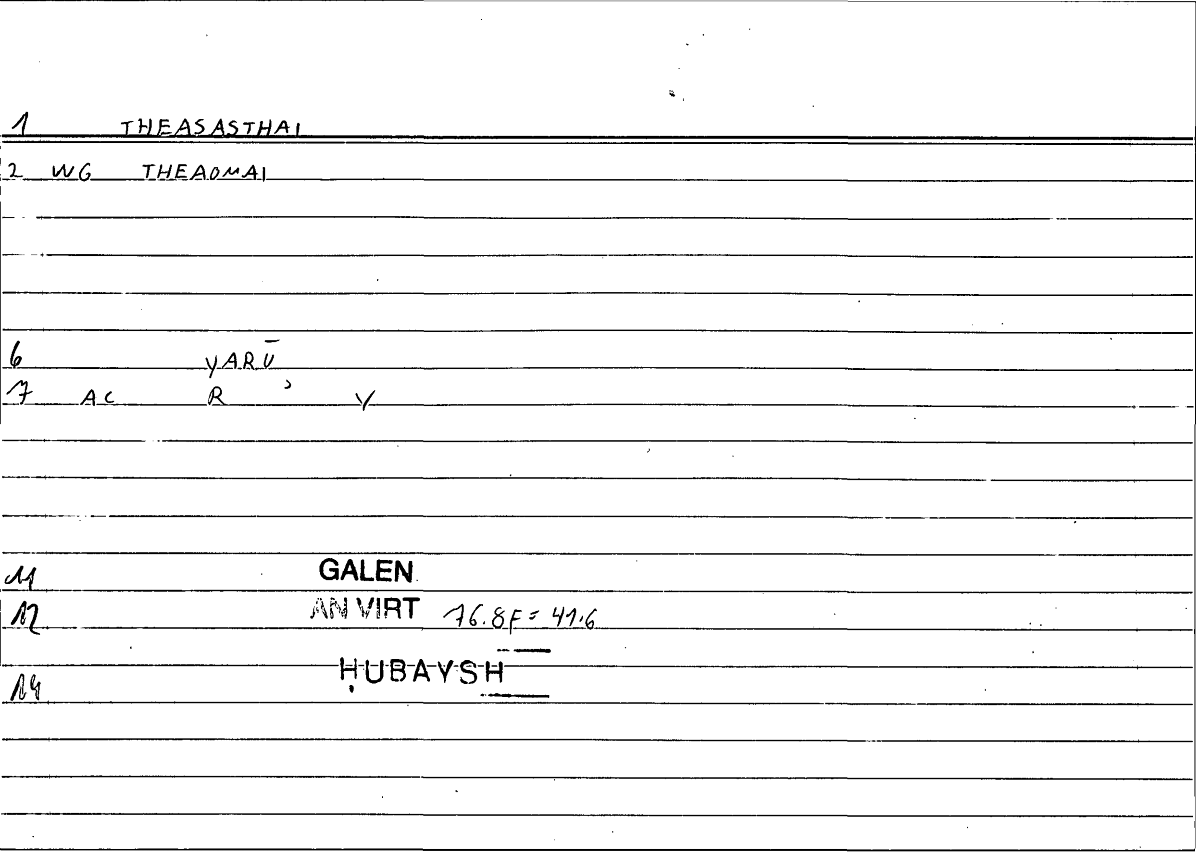 1 THEASASTHAI
2 WG THEAOMAI
6 YARŪ
7 AC R ʾ Y
11 GALEN
12 AN VIRT 76.8F = 41.6
14 ḤUBAYSH